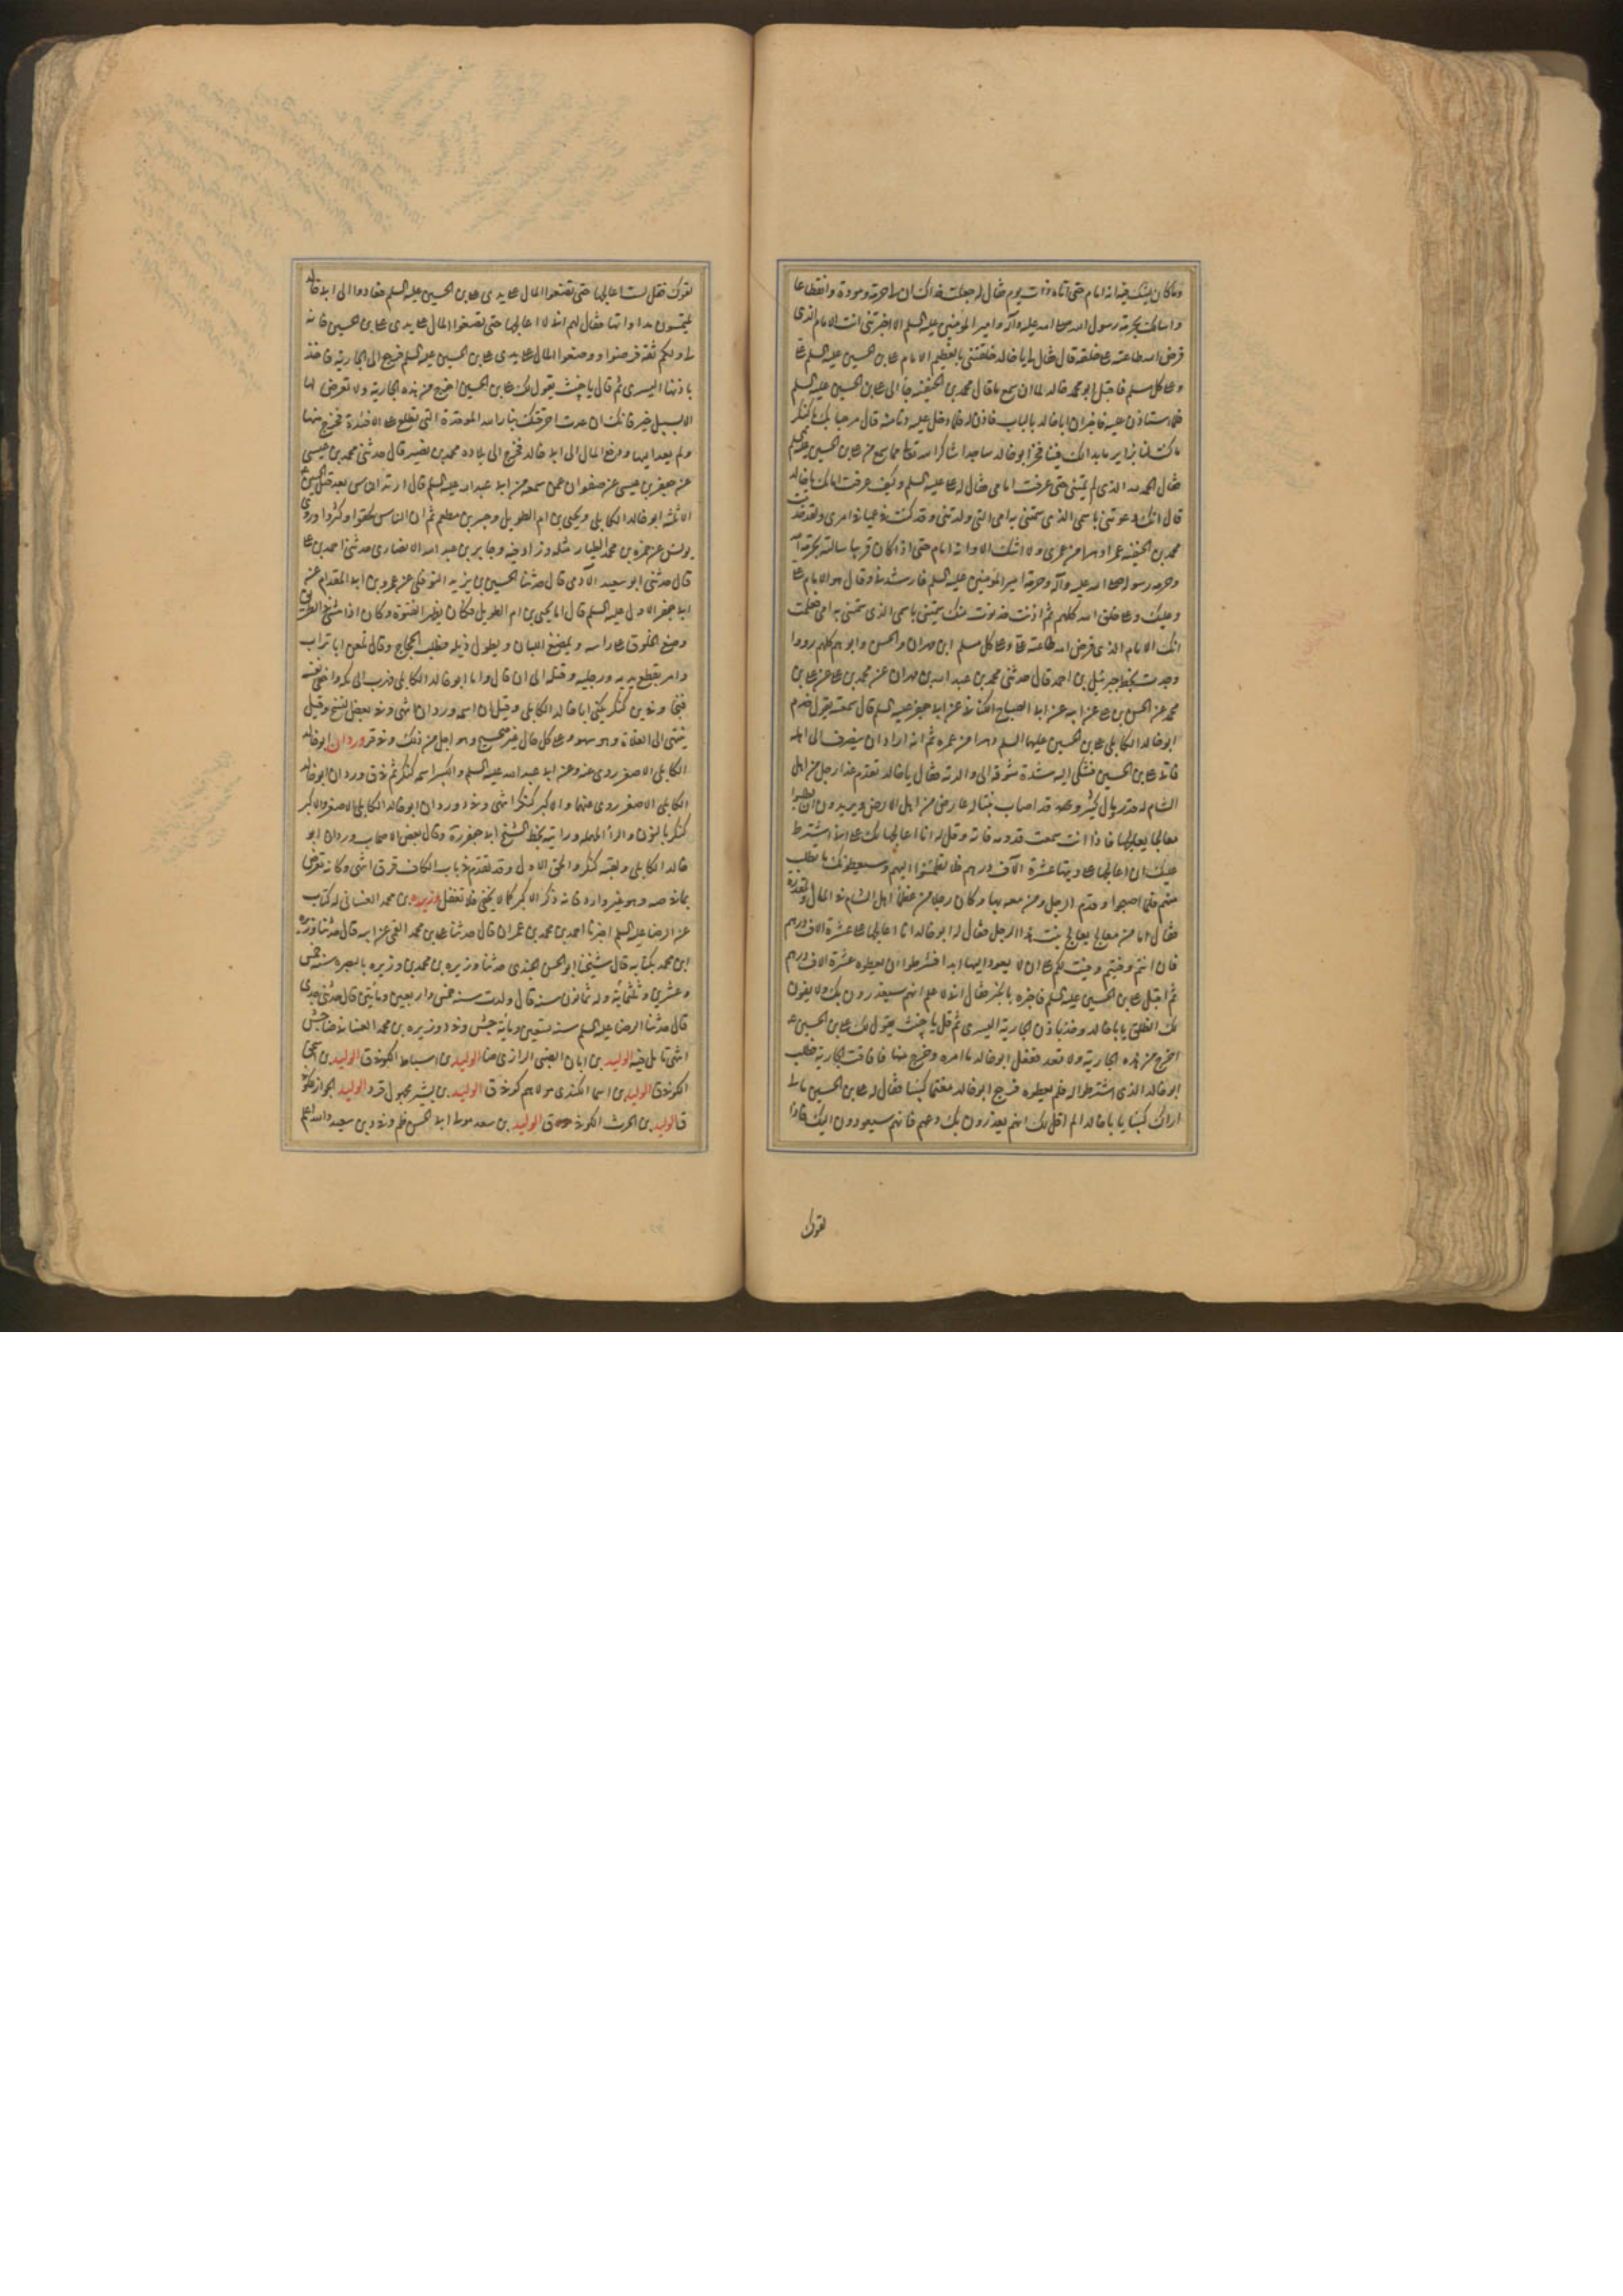 وما كان يشك فيه انه امام حتى اتاه ذات يوم فقال له جعلت فداك ان لى حرمة ومودة وانقطاعا
واسالك بحرمة رسول الله صلى الله عليه وآله وامير المؤمنين عليه السلم الا اخبرتنى انت الامام الذى
فرض الله طاعته على خلقه قال فقال لى يابا خالد حلفتنى بالعظيم الامام على بن الحسين عليه السلم على
وعلى كل مسلم فاقبل ابو خالد لما ان سمع ما قال محمد بن الحنفية جاء الى على بن الحسين عليه السلم
فلما استاذن عليه فاخبر ان ابا خالد بالباب فاذن له فلما دخل عليه دنا منه قال مرحبا بك يا كنكر
ما كنت لنا بزاير ما بدا لك فينا فخر ابو خالد ساجدا شاكرا لله تعالى مما سمع من على بن الحسين عليه السلم
فقال الحمد لله الذى لم يمتنى حتى عرفت امامى فقال له على عليه السلم وكيف عرفت امامك يابا خالد
قال انك دعوتنى باسمى الذى سمتنى به امى التى ولدتنى وقد كنت فى عمياء من امرى ولقد خدمت
محمد بن الحنفية عمرا دهرا من عمرى ولا اشك الا وانه امام حتى اذا كان قريبا سالته بحرمة الله
وحرمة رسوله صلى الله عليه وآله وحرمة امير المؤمنين عليه السلم فارشدنى وقال هو الامام على
وعليك وعلى خلق الله كلهم ثم اذنت فدنوت منك سميتنى باسمى الذى سمتنى به امى فعلمت
انك الامام الذى فرض الله طاعته على وعلى كل مسلم ابن مهران والحسن وابوه كلهم رووا
وجدت بخط جبرئيل بن احمد قال حدثنى محمد بن عبد الله بن مهران عن محمد بن على عن على بن
محمد عن الحسن بن على عن ابيه عن ابى الصباح الكنانى عن ابى جعفر عليه السلم قال سمعته يقول خدم
ابو خالد الكابلى على بن الحسين عليهما السلم دهرا من عمره ثم انه اراد ان ينصرف الى اهله
فاتى على بن الحسين فشكى اليه شدة شوقه الى والدته فقال يابا خالد يقدم غدا رجل من اهل
الشام له قدر ومال كثير وقد اصاب بنتا له عارض من اهل الارض ويريدون ان يطلبوا
معالجا يعالجها فاذا انت سمعت قدومه فاته وقل له انا اعالجها لك على انى اشترط
عليك ان اعالجها على ديتها عشرة الآف درهم فلا تطمئنوا اليهم وسيعطونك ما يطلب
منهم فلما اصبحوا وقدم الرجل ومن معه بها وكان رجلا من عظماء اهل الشام فى المال والمقدرة
فقال اما من معالج يعالج بنت هذا الرجل فقال له ابو خالد انا اعالجها على عشرة الاف درهم
فان انتم وفيتم وفيت لكم على ان لا يعود اليها ابدا فشرطوا ان يعطوه عشرة الاف درهم
ثم اقبل على بن الحسين عليه السلم فاخبره بالخبر فقال انى لا علم انهم سيغدرون بك ولا يفون
لك انطلق يابا خالد وخذ باذن الجارية اليسرى ثم قل يا خبيث يقول لك على بن الحسين
اخرج من هذه الجارية ولا تعد ففعل ابو خالد ما امره وخرج منها فافاقت الجارية فطلب
ابو خالد الذى اشترطوا له فلم يعطوه فرجع ابو خالد مغتما كئيبا فقال له على بن الحسين مالى
اراك كئيبا يابا خالد الم اقل لك انهم يغدرون بك دعهم فانهم سيعودون اليك فاذا
لقوك
لقوك فقل لست اعالجها حتى تضعوا المال على يدى على بن الحسين عليه السلم فعادوا الى ابى خالد
يلتمسون مداواتها فقال لهم انى لا اعالجها حتى تضعوا المال على يدى على بن الحسين فانه
لى ولكم ثقة فرضوا ووضعوا المال على يدى على بن الحسين عليه السلم فرجع الى الجارية فاخذ
باذنها اليسرى ثم قال يا خبيث يقول لك على بن الحسين اخرج من هذه الجارية ولا تعرض لها
الا بسبيل خير فانك ان عدت احرقتك بنار الله الموقدة التى تطلع على الافئدة فخرج منها
ولم يعد اليها ودفع المال الى ابى خالد فخرج الى بلاده محمد بن نصير قال حدثنى محمد بن عيسى
عن جعفر بن عيسى عن صفوان عمن سمعه من ابى عبد الله عليه السلم قال ارتد الناس بعد قتل الحسين
الا ثلثة ابو خالد الكابلى ويحيى بن ام الطويل وجبير بن مطعم ثم ان الناس لحقوا وكثروا وروى
يونس عن حمزة بن محمد الطيار مثله وزاد فيه وجابر بن عبد الله الانصارى حدثنى احمد بن على
قال حدثنى ابو سعيد الآدمى قال حدثنا الحسين بن يزيد النوفلى عن عمرو بن ابى المقدام عن
ابى جعفر الاول عليه السلم قال اما يحيى بن ام الطويل فكان يظهر الفتوة وكان اذا مشى فى الطريق
وضع الخلوق على راسه ويمضغ اللبان ويطول ذيله فطلبه الحجاج وقال تلعن ابا تراب
وامر بقطع يديه ورجليه وقتله الى ان قال واما ابو خالد الكابلى فهرب الى مكه واخفى نفسه
فنجا وفى بن كنكر يكنى ابا خالد الكابلى وقيل ان اسمه وردان انتهى وفى بعض النسخ وقيل
ينتهى الى الغلاة وهو سهو وعلى كل حال غير صحيح وهو اجل من ذلك وفى قر وردان ابو خالد
الكابلى الاصغر روى عنه وعن ابى عبد الله عليه السلم والكبير اسمه كنكر ثم فى ق وردان ابو خالد
الكابلى الاصغر روى عنهما والاكبر كنكر انتهى وفى د وردان ابو خالد الكابلى الاصغر والاكبر
كنكر بالنون والراء المهملة ورايته بخط الشيخ ابى جعفر رة وقال بعض الاصحاب وردان ابو
خالد الكابلى ولقبه كنكر والحق الاول وقد تقدم فى باب الكاف فرق انتهى وكانه تعرض
بما فى صه وهو غير وارد فانه ذكر الاكبر كما لا يخفى فلا تغفل وزيره بن محمد الغسانى له كتاب
عن الرضا عليه السلم اخبرنا احمد بن محمد بن عمران قال حدثنا على بن محمد القمى عن ابيه قال حدثنا وزيره
ابن محمد بكتابه قال شيخنا ابو الحسن الجندى حدثنا وزيره بن محمد بن وزيره بالبصره سنة خمس
وعشرين وثلثمائة وله ثمانون سنه قال ولدت سنه خمس واربعين ومأيتين قال حدثنى جدى
قال حدثنا الرضا عليه السلم سنه تسعين ومائة جش وفى د وزيره بن محمد الغسانى ضا جش
انتهى تامل فيه الوليد بن ابان الضبى الرازى ضا الوليد بن اسباط الكوفى ق الوليد بن اسحق
الكوفى ق الوليد بن اسما الكندى مولاهم كوفى ق الوليد بن بشير مجهول قر د الوليد الجواز كوفى
ق الوليد بن الحرث الكوفى ق الوليد بن سعد مولى ابى الحسن ظم وفى د بن سعيد والله اعلم